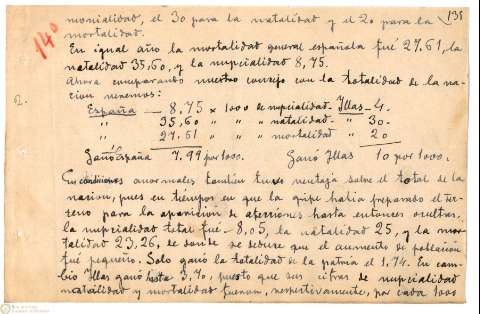 monialidad, el 30 para la natalidad y el 20 para la
mortalidad.
138
140
En igual año la mortalidad general española fué 27,61, la
natalidad 35,60, y la nupcialidad 8,75.
Ahora comparando nuestro consejo con la totalidad de la na-
cion veremos:
España — 8,75 x 1000 de nupcialidad - Illas - 4.
" 35,60 " " " natalidad - " 30 -
" 27,61 " " " mortalidad " 20
Ganó España 7.99 por 1000. Ganó Illas 10 por 1000.
En condiciones anormales tambien tuvo ventaja sobre el total de la
nacion, pues en tiempos en que la gripe habia preparado el ter-
reno para la aparicion de afecciones hasta entonces ocultas,
la nupcialidad total fué - 8,05, la natalidad 25, y la mor-
talidad 23,26, de donde se deduce que el aumento de poblacion
fué pequeño. Solo ganó la totalidad de la patria el 1,74. En cam-
bio Illas ganó hasta 3,70, puesto que sus cifras de nupcialidad
natalidad y mortalidad fueron, respectivamente, por cada 1000